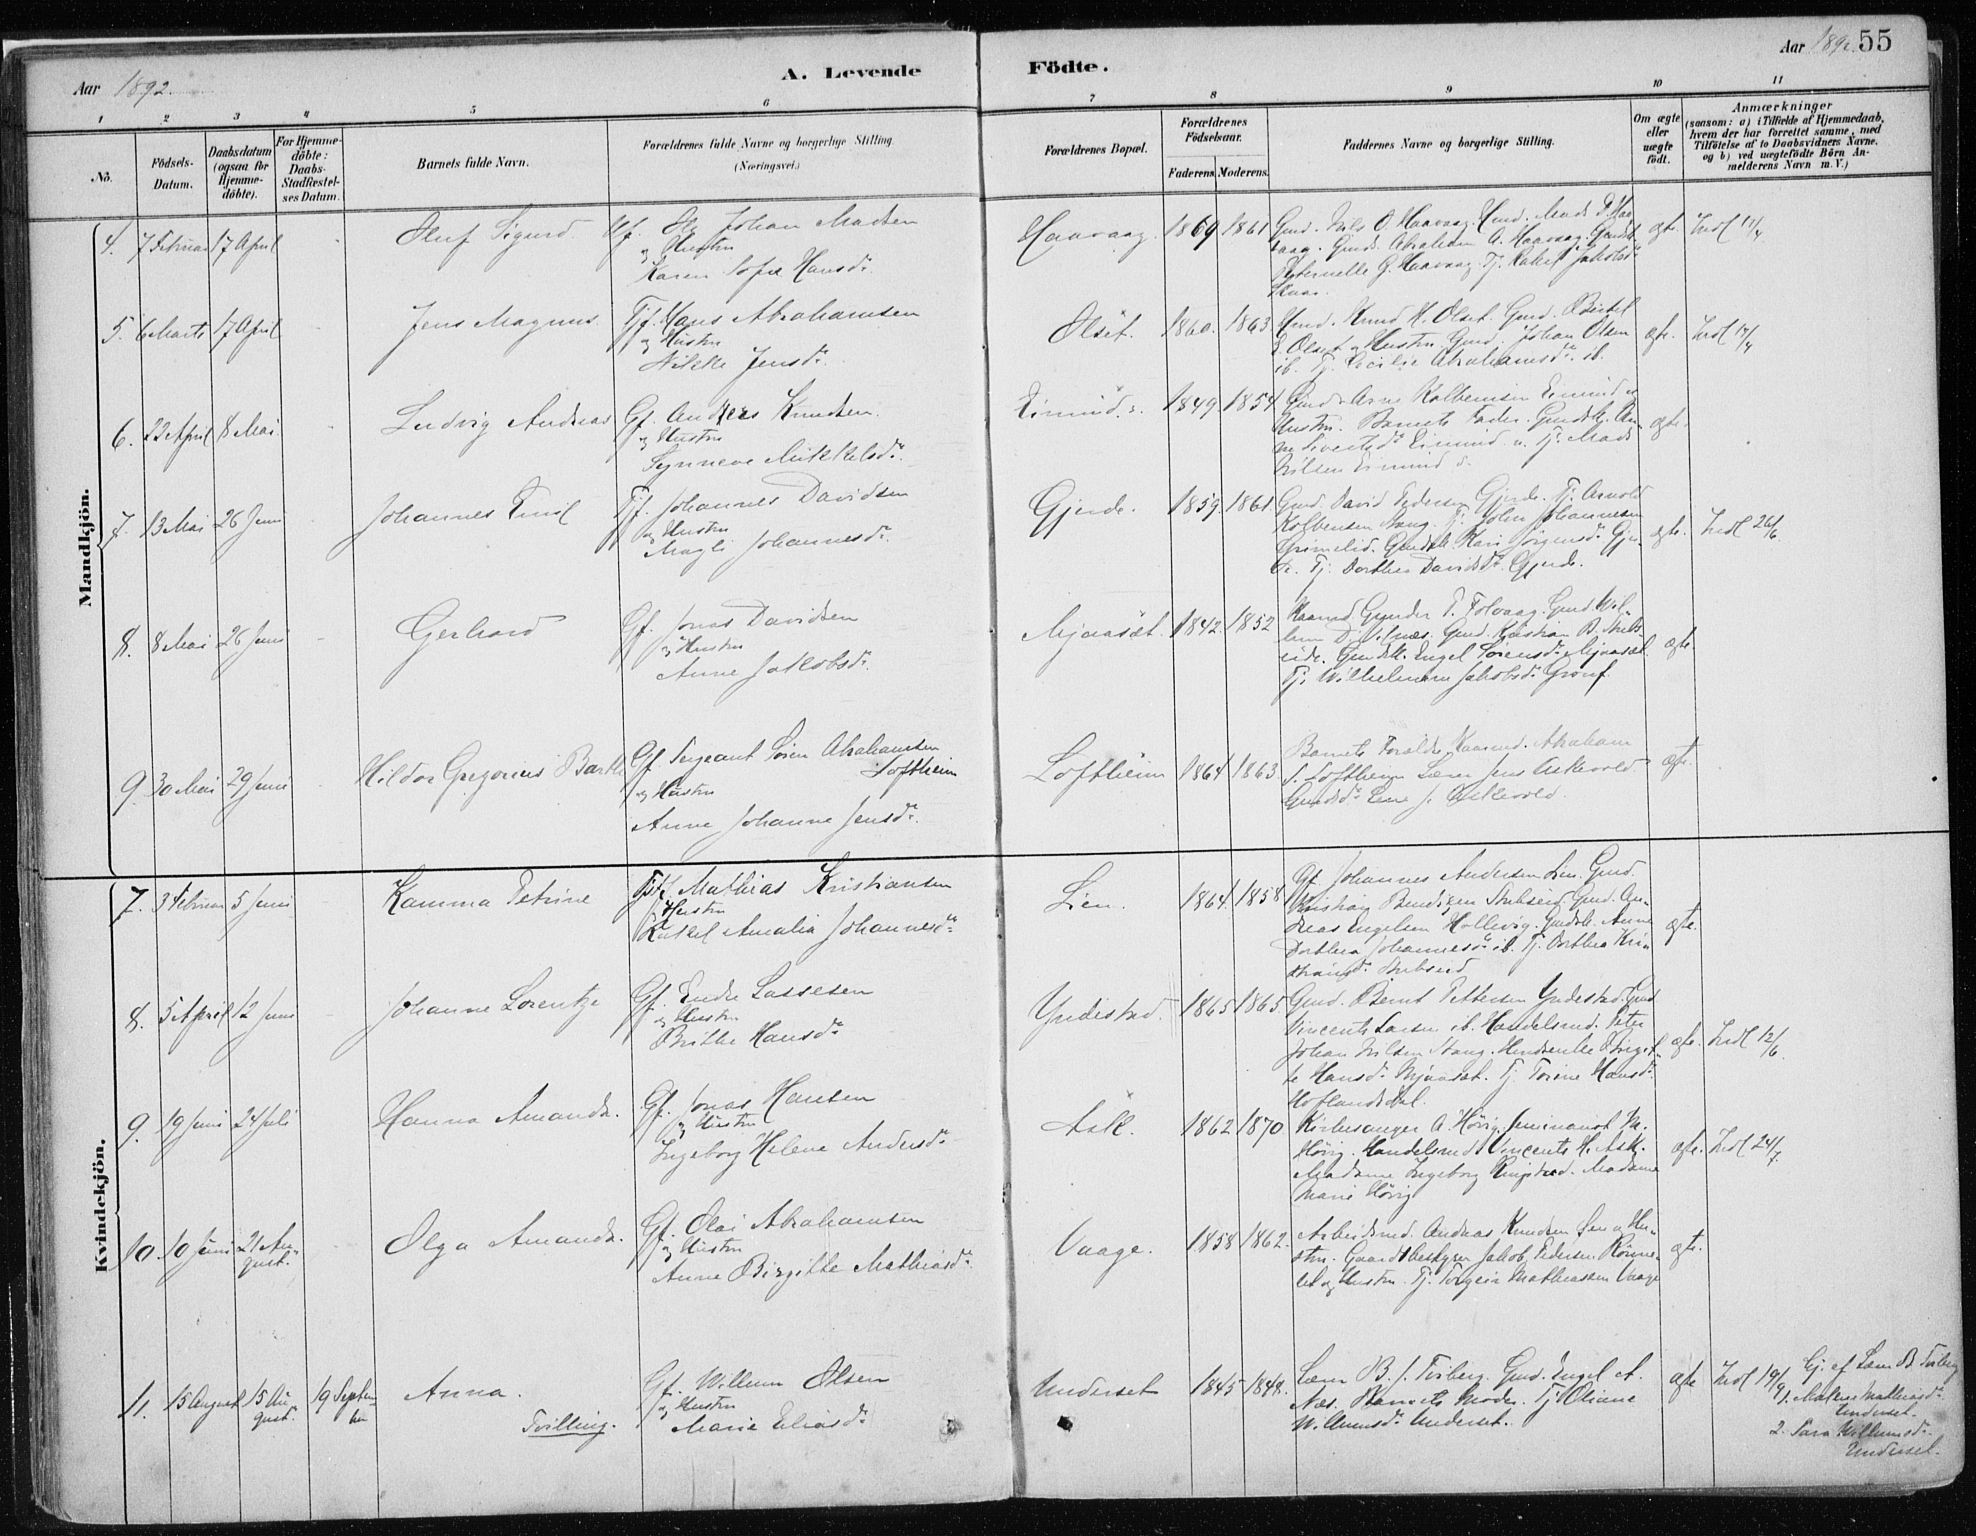 Aar 1892.
A. Levende Födte.
Aar 1892. 55
1 2 3 4 5 6 7 8 9 10 11
No.
Födsels-
Datum.
Daabsdatum
(ogsaa for
Hjemme-
döbte).
For Hjemme-
döbte:
Daabs-
Stadfæstel-
ses Datum.
Barnets fulde Navn.
Forældrenes fulde Navne og borgerlige Stilling.
(Næringsvei.)
Forældrenes Bopæl.
Forældrenes
Födselsaar.
Faderens. Moderens.
Faddernes Navne og borgerlige Stilling.
Om ægte
eller
uægte
födt.
Anmærkninger
(saasom: a) i Tilfælde af Hjemmedaab,
hvem der har forrettet samme, med
Tilföielse af to Daabsvidners Navne,
og b) ved uegtefödte Börn An-
melderens Navn m. V.)
Mandkjön.
4. 7 Februar 17 April Oluf Sigurd
Johan Madsen
og Hustru
Karen Sofie Hansd.
Haavaag. 1869 1861
Gmd. Nils O. Haavaag. Gmd. Mads P. Haa-
vaag. Gmds. Abraham A. Haavaag. Gmdk.
Petternelle G. Haavaag. Tj. Rakel Jakobsd.
Skaar.
egt. Indl 17/4
5. 6 Marts 17 April Jens Magnus.
Tjf. Hans Abrahamsen
og Hustru
Nikke Jensd.
Olset. 1860. 1863.
Gmd. Knud H. Olset. Gmd. Bertel
E. Olset og Hustru. Gmd. Johan Olsen
ib. Tj. Cecilie Abrahamsd. ib.
egt. Indl 17/4
6. 22 April 8 Mai Ludvig Andreas
Gf. Anders Knudsen.
og Hustru
Synneve Mikkelsd.
Eimind. 1849. 1854
Gmd. Arne Kolbensen Eimind og
Hustru. Barnets Fader. Gmdk. An-
ne Sivertsd. Eimind. Tj. Mads
Nilsen Eimind
egte.
7. 13 Mai 26 Juni Johannes Emil
Tjf. Johannes Davidsen
og Hustru
Magli Johannesd.
Gjerde. 1859. 1861.
Gmd. David Pedersen Gjerde. Tj. Arnold
Kolbensen Stang. Tj. John Johannesen
Grimelid. Gmdk. Kari Jörgensd. Gjer-
de. Tj. Dorthea Davidsd. Gjerde.
egte. Indl 26/6.
8. 8 Mai 26 Juni Gerhard
Gf. Jonas Davidsen
og Hustru
Anne Jakobsd.
Mjaaset. 1842. 1852
Kaarmd. Gunder T. Folvaag. Gmd. Wil-
lum D. Gmd. Kristian B. Stubs-
eid. Gmdk. Engel Sörensd. Mjaaset.
Tj. Wilhelmine Jakobsd.
egte.
9. 30 Mai 29 Juni Hildor Gregorius Barth
Gf. Sergeant Sören Abrahamsen
Loftheim
og Hustru
Anne Johanne Jensd.
Loftheim 1864 1863.
Barnets Foraldre. Kaarmd. Abraham
S. Loftheim. Lærer Jens Askevold
Gmdsd. Lene J. Askevold.
egte.
Kvindekjön.
7. 3 Februar 5 Juni Kamma Petrine
Mathias Kristiansen
og Hustru
Rakel Amalia Johannesd.
Lien. 1864. 1858
Gf. Johannes Andersen Lien. Gmd.
Kristian Bendixen Stubseid. Gmd. An-
dreas Engelsen Hollevig. Gmdk. Anne
Dorthea Johannesd. ib. Tj. Dorthea Kri-
stiansd. Stubseid
egte.
8. 5 April 12 Juni Johanne Lorentze
Gf. Endre Lassesen
og Hustru
Brithe Hansd.
Yndestad. 1865 1865.
Gmd. Bernt Pettersen Yndestad. Gmd
Vincents Larsen ib. Handelsmd. Peter
Johan Nilsen Stang. Birgit-
te Hansd. Mjaaset. Tj. Torine Hansd.
Hoflandsdal.
egte. Indl 12/6.
9. 19 Juni 24 Juli Hanna Amanda.
Gf. Jonas Hansen
og Hustru
Ingeborg Helene Andersd.
Ask. 1862 1870
Kirkesanger A. Hövig. Seminarist M.
Hövig. Handelsmd. Vincents H. Ask.
Madame Ingeborg Ringstad. Madame
Marie Hövig
egte. Indl 24/7.
10. 10 Juni 21 Au-
gust. Olga Amanda.
Gf. Olai Abrahamsen
og Hustru
Anne Birgitte Mathiasd.
Vaage. 1858 1862.
Arbeidsmd. Andreas Knudsen og Hu-
stru. Gaardbestyrer Jakob Pedersen Rönne-
set og Hustru. Tj. Torgeir Mathiassen Vaage
egte.
11. 15 August 15 Au-
gust. 19 Septem-
ber Anna.
Tvilling.
Gf. Willum Olsen
og Hustru
Marie Eliasd.
Underset 1845 1848.
Lærer B. J. Tviberg. Gmd. Engel A.
Næs. Barnets Moder. Tj. Oliane
Willumsd. Underset.
egte Indl 19/9
Hj. af Lærer B. Tviberg
1. Malene Mathiasd.
Underset.
2. Sara Willumsd.
Underset.